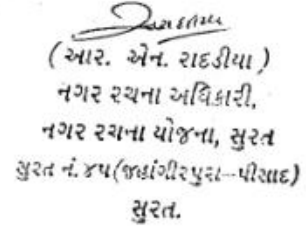 (આર. એન. રાદડીયા)
નગર રચના અધિકારી,
નગર રચના યોજના, સુરત
સુરત નં. ૪૫(જહાંગીરપુરા-પીસાદ)
સુરત.